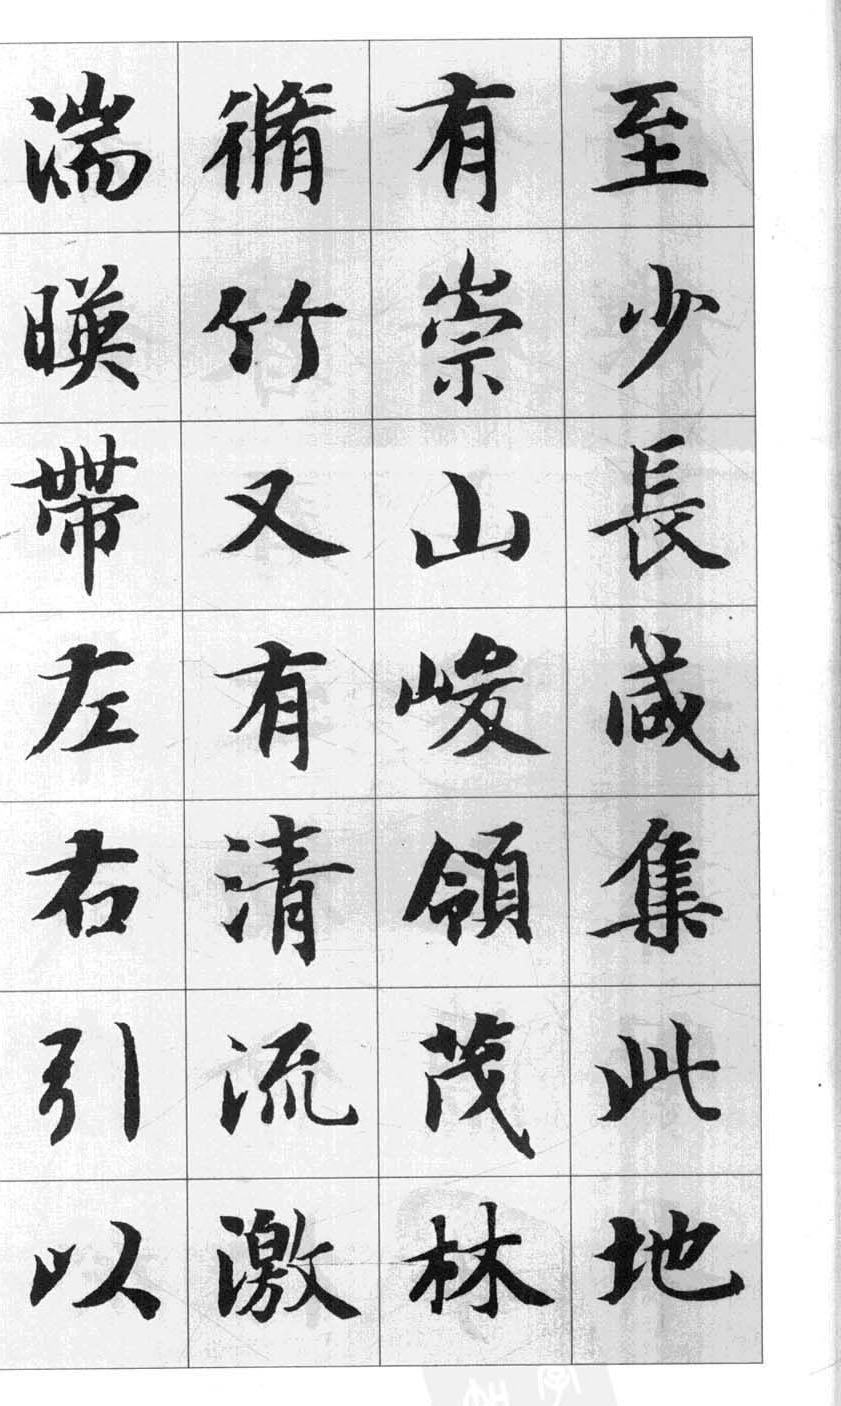 至少長咸集此地
有崇山峻領茂林
脩竹又有清流激
湍暎帶左右引以